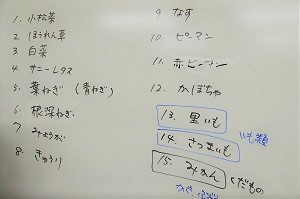 1. 小松菜
2 ほうれん草
3. 白菜
4 サニーレタス
5. 葉ねぎ (青ねぎ)
6. 根深ねぎ
7 みょうが
8. きゅうり
9 なす
10. ピーマン
11. 赤ピーマン
12. かぼちゃ
13. 里いも
14. さつまいも いも類
15. みかん くだもの